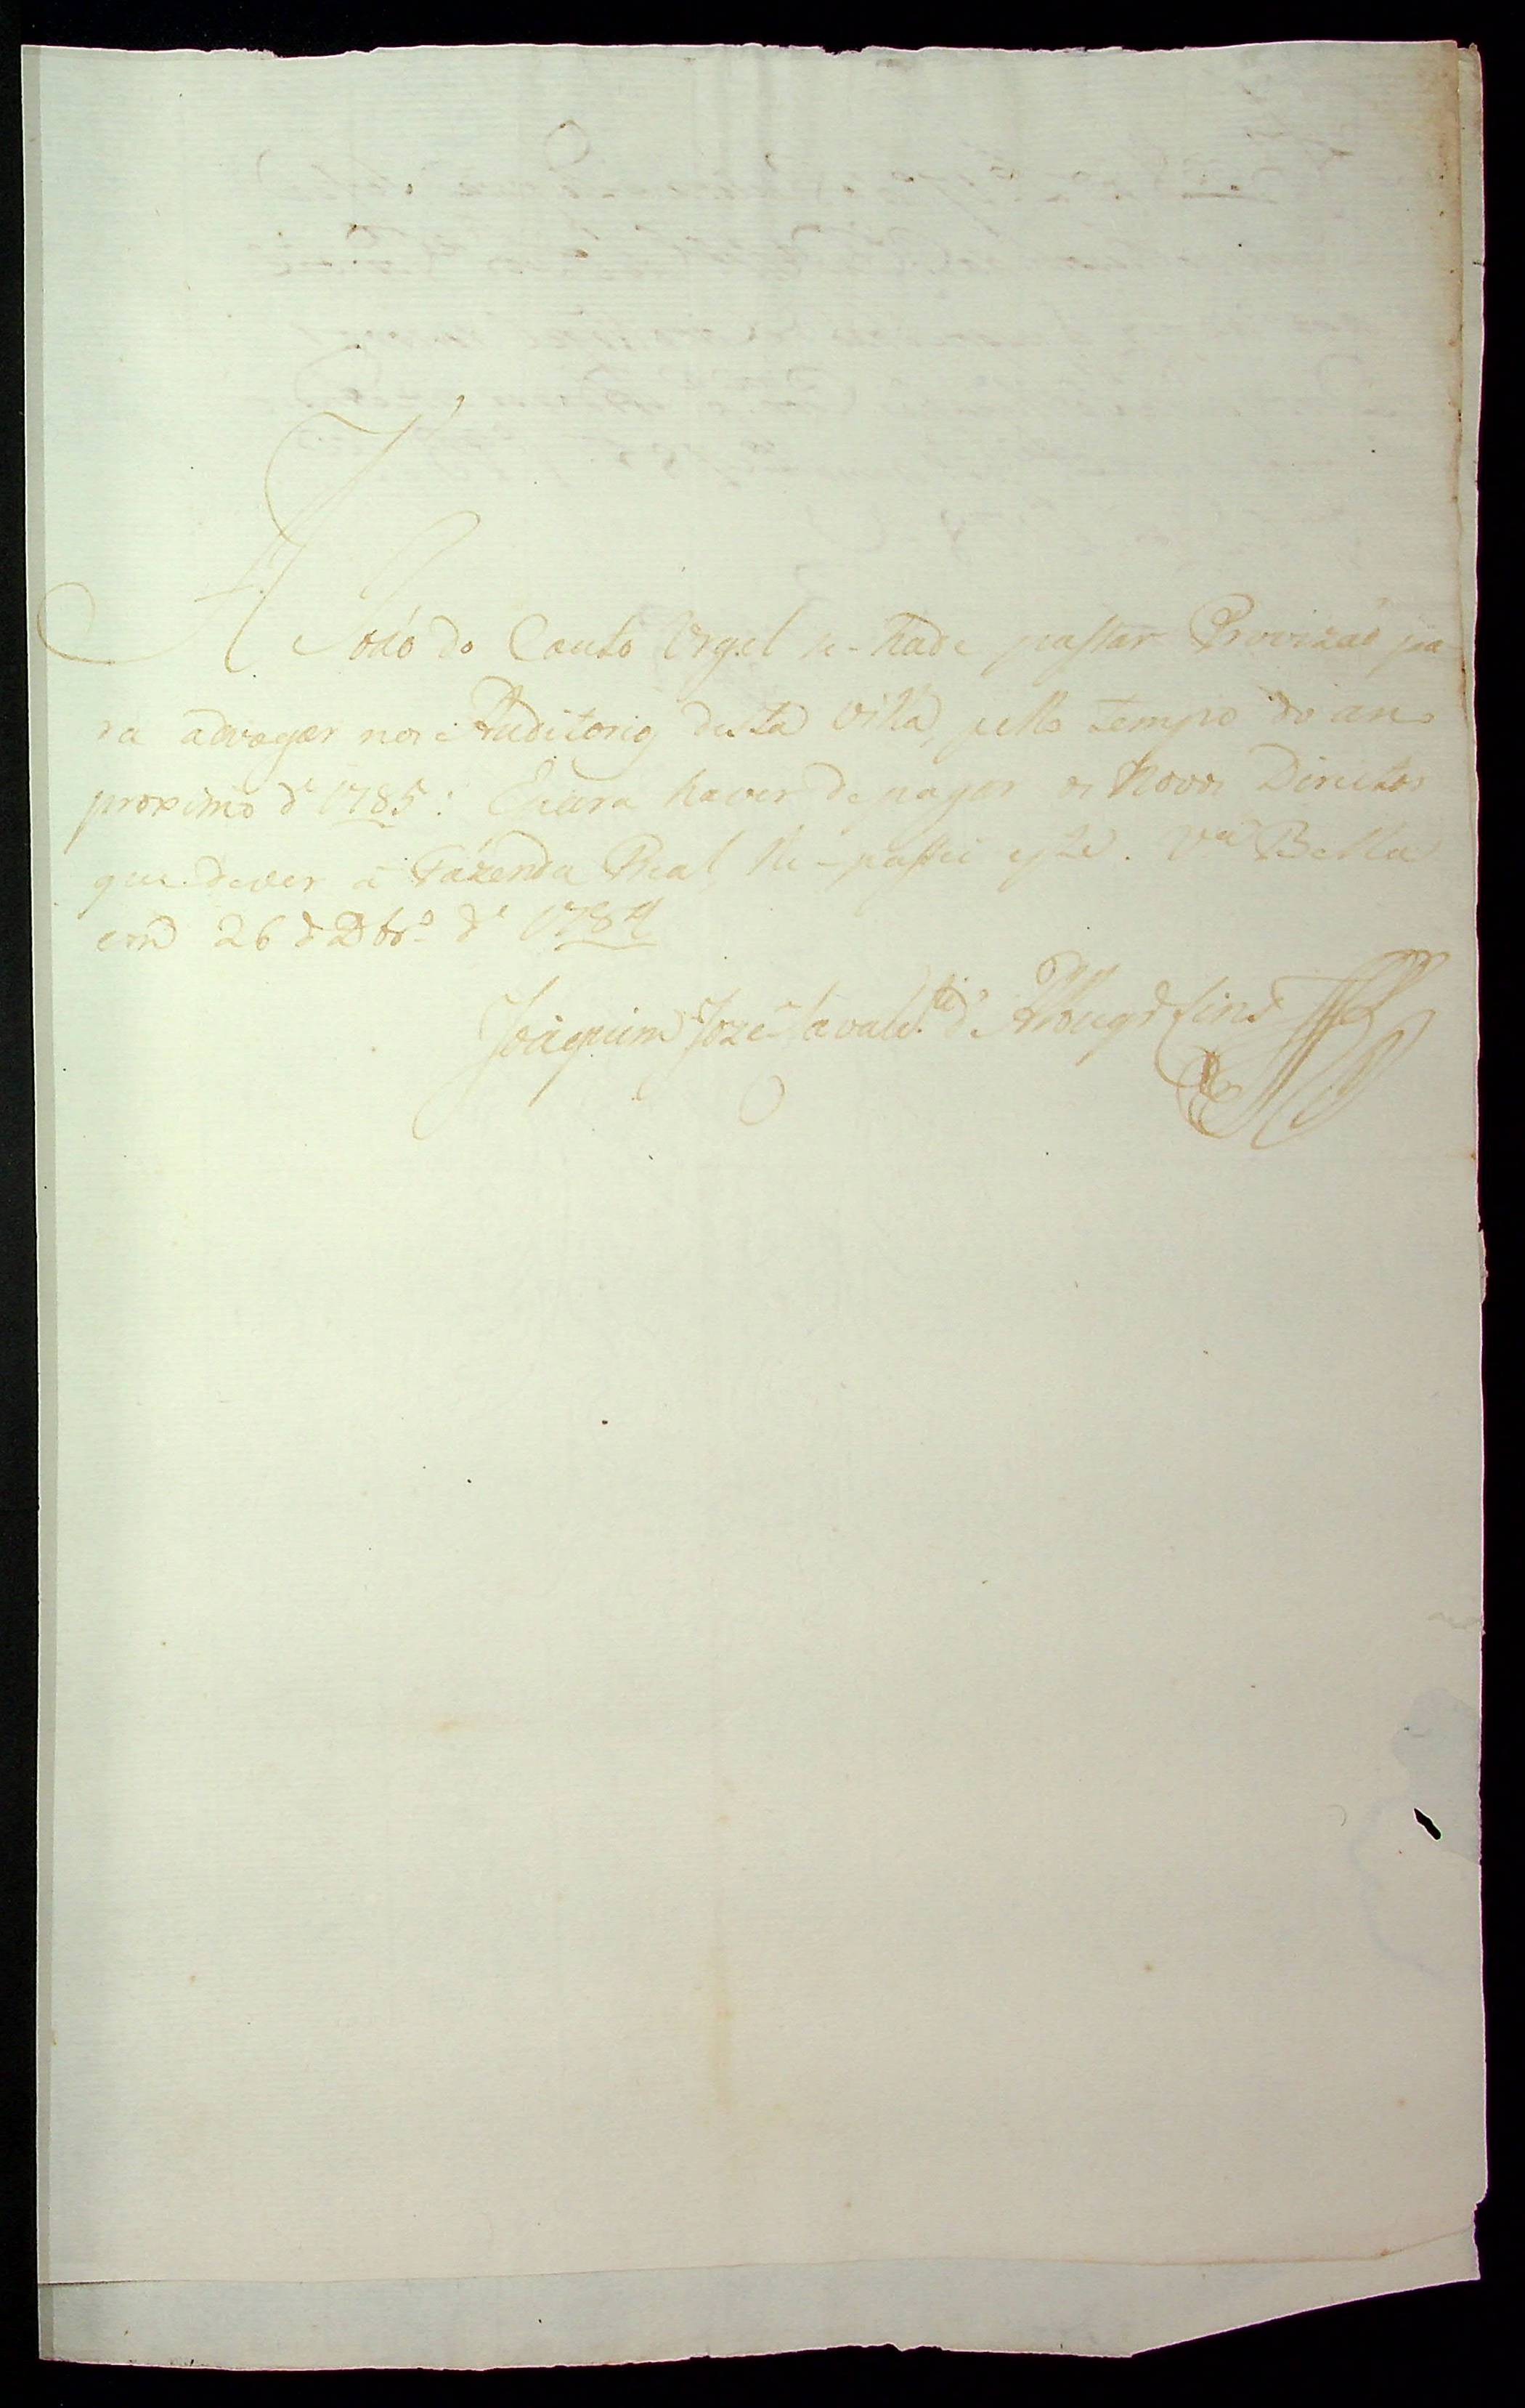 A João do Couto Orgel se-hade passar Provizaõ pa
ra advogar nos Auditorios desta Villa, pello tempo do anno
proximo de 1785: Epara haver de pagar os Novos Direitos
que dever á Fazenda Real, lhe-passei este. Vª Bella
em 26 de Dbrº de 1784
Joaquim Jozé Cavalcti de Albuqe Lins